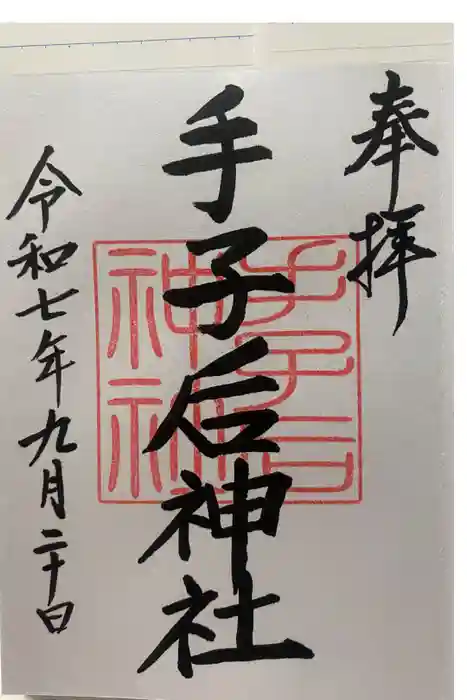 奉拝
手子后神社
令和七年九月二十日
手子后
神社